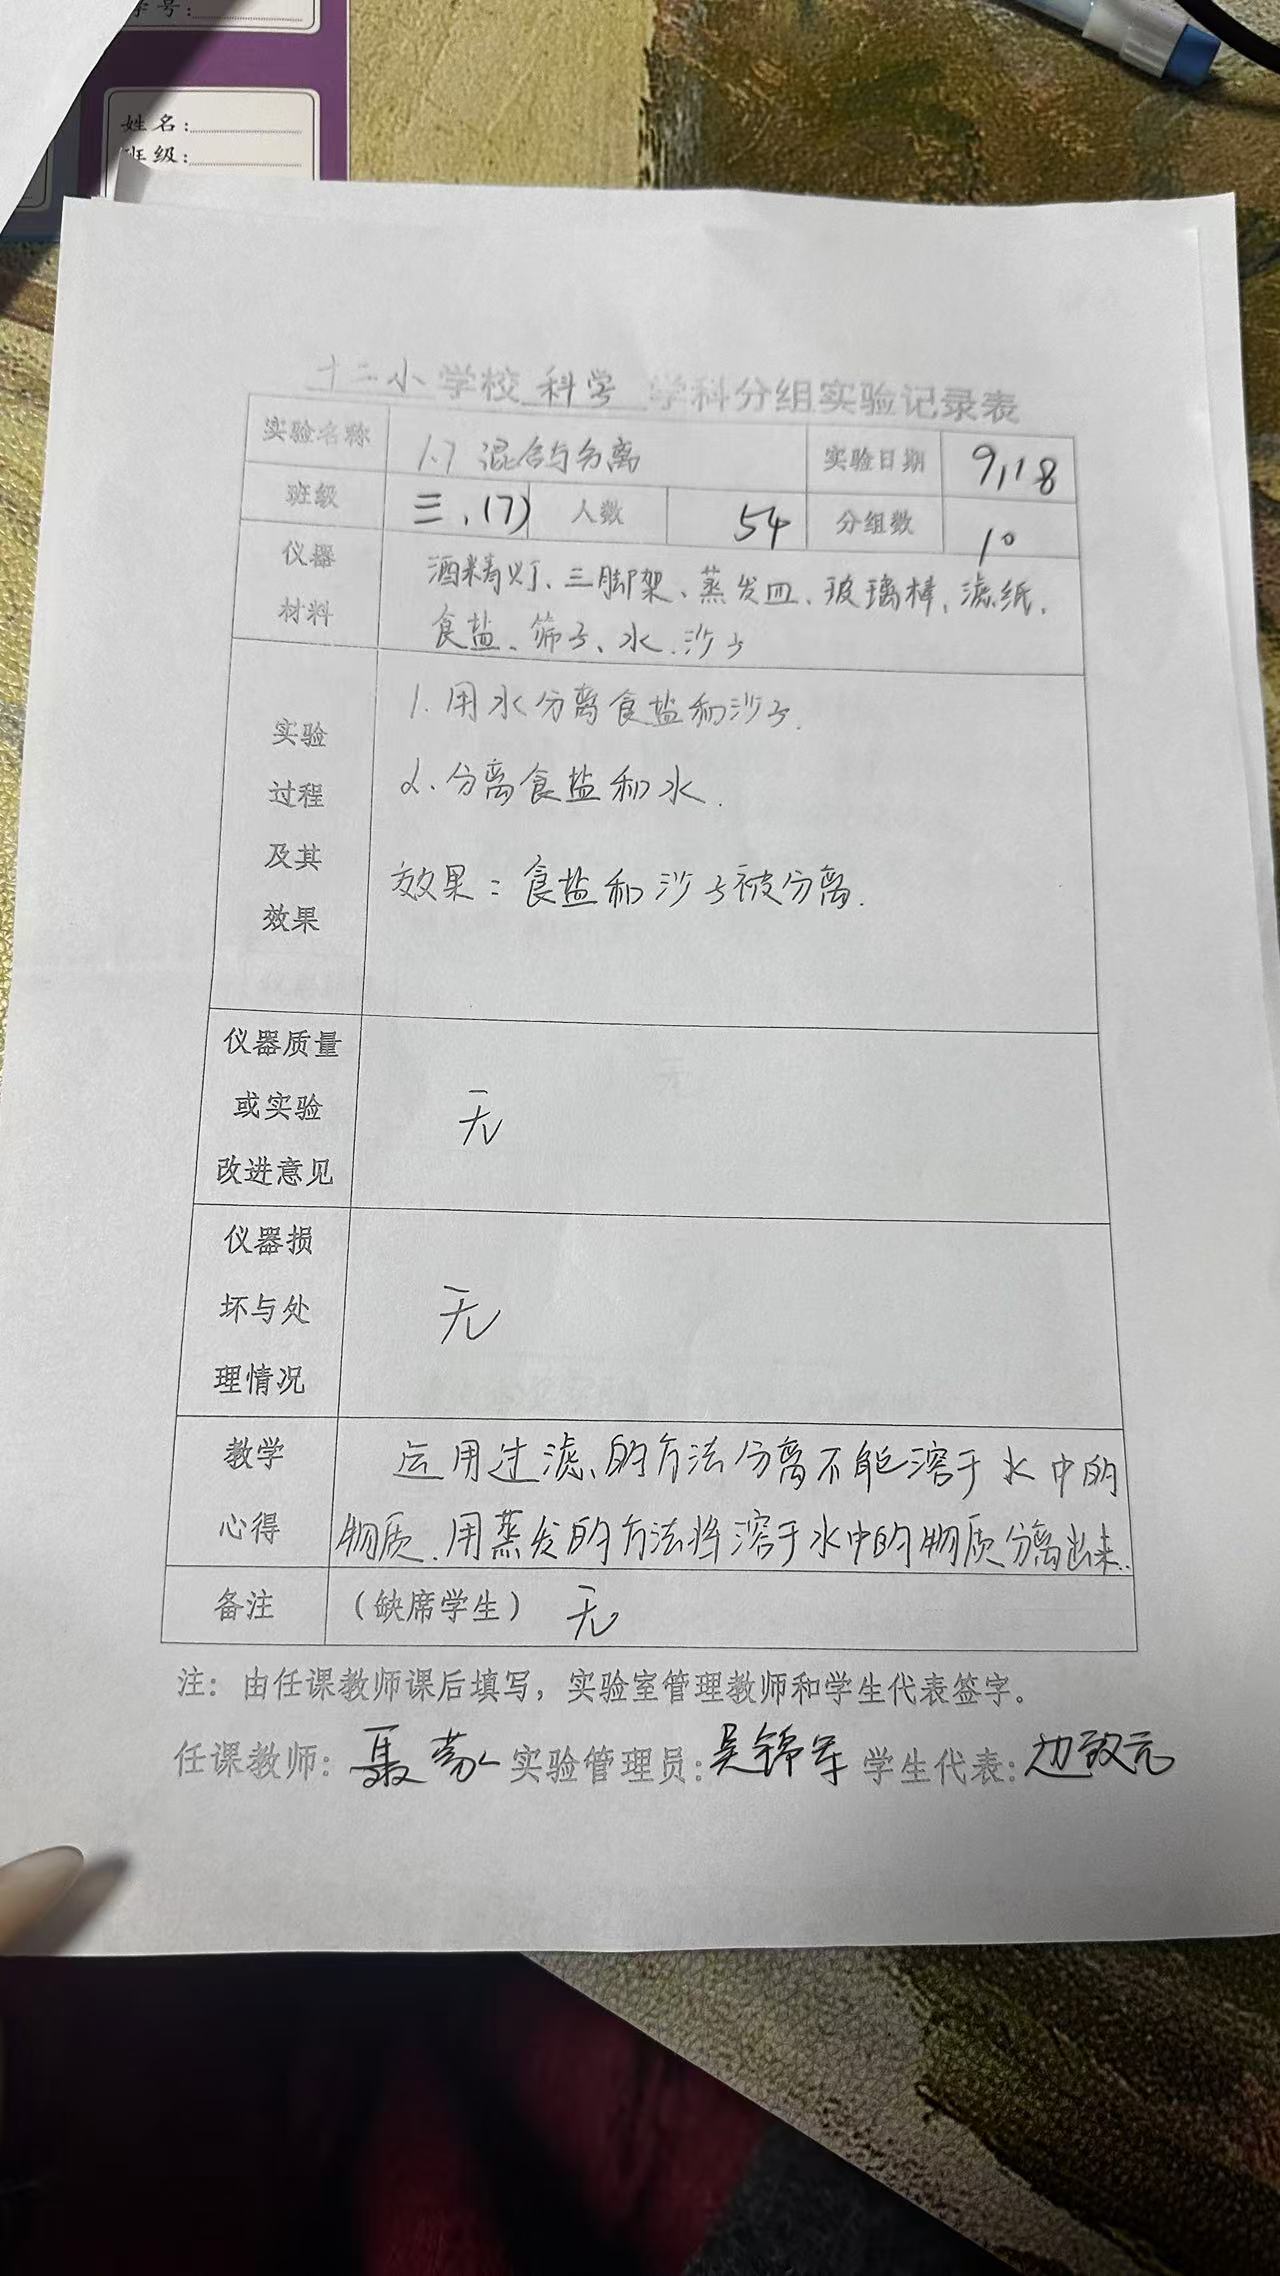 学号:
姓名:
班级:
十二小学校 科学 学科分组实验记录表
实验名称 1.7 混合与分离 实验日期 9,18
班级 三.(7) 人数 54 分组数 10
仪器材料 酒精灯、三脚架、蒸发皿、玻璃棒、滤纸、
食盐、筛子、水、沙子
实验
过程
及其
效果
1.用水分离食盐和沙子.
2.分离食盐和水.
效果:食盐和沙子被分离.
仪器质量
或实验
改进意见
无
仪器损
坏与处
理情况
无
教学
心得
运用过滤的方法分离不能溶于水中的
物质.用蒸发的方法将溶于水中的物质分离出来.
备注 (缺席学生) 无
注：由任课教师课后填写，实验室管理教师和学生代表签字。
任课教师: 聂 实验管理员: 吴锦军 学生代表: 边致元